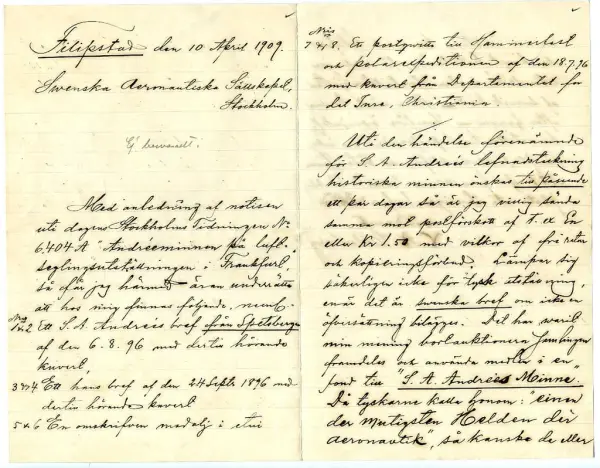 Filipstad den 10 April 1909.
Svenska Aeronautiska Sällskapet,
Stockholm.
Ej besvaradt.
Med anledning af notisen
uti dagens Stockholms Tidningen No
6404 A "Andréeminnen på luft-
seglingsutställningen i Frankfurt"
så får jag härmed äran underrätta
att hos mig finnas följande, neml:
Nris
1 & 2 Ett S. A. Andrées bref från Spetsbergen
af den 6. 8. 96 med dertill hörande
kuvert,
3 & 4 Ett hans bref af den 24 Septbr 1896 med
dertill hörande kuvert
5 & 6 En omskrifven medalj i etui
Nris
7 & 8. Ett postqvitto till Hammerfest
och polarexpeditionen af den 18.7.96
med kuvert från Departementet for
det Indre, Christiania.
Uti den händelse förenämnde
för S. A. Andrées lefnadsteckning
historiska minnen önskas till påseende
ett par dagar så är jag villig sända
samma mot postförskott af T. ex En
eller Kr 1.50 med vilkor af fri retur
och kopieringsförbud. Lämpar sig
säkerligen icke för tysk utställning,
enär det är svenska bref om icke en
öfversättning bilägges. Det har varit
min mening bortauktionera samlingen
framdeles och använda medlen i en
fond till "S. A. Andrées Minne.
Då tyskarne kalla honom: "einer
der mutigsten Helden der
Aeronautik", så kanske de eller